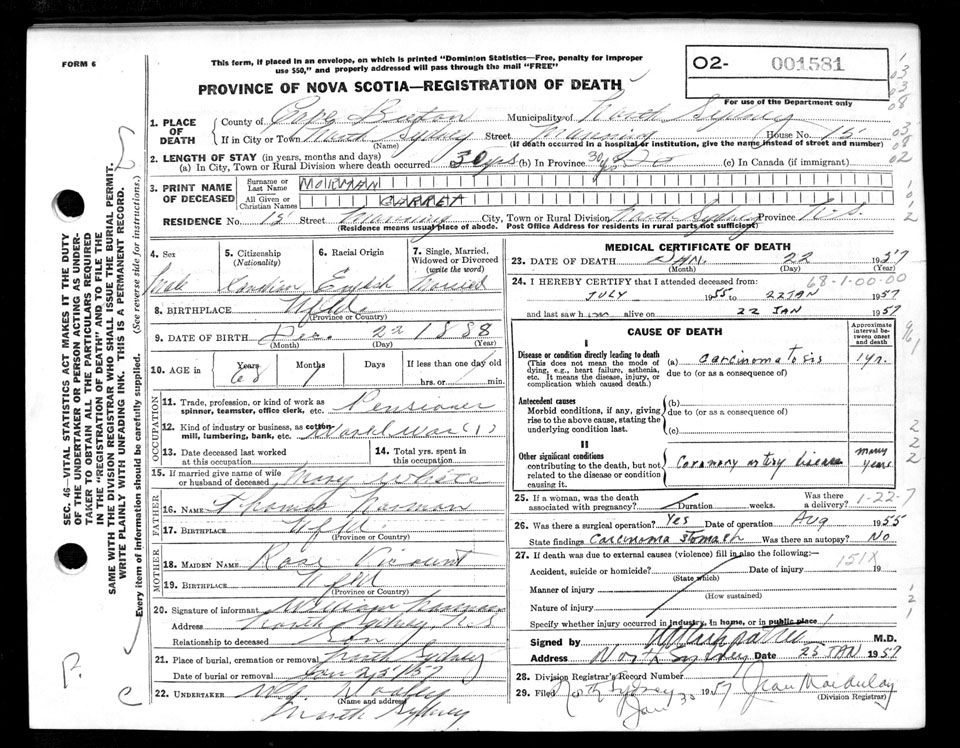 FORM 6
This form, if placed in an envelope, on which is printed "Dominion Statistics—Free, penalty for improper
use $50," and properly addressed will pass through the mail "FREE"
O2- 001581
For use of the Department only
PROVINCE OF NOVA SCOTIA—REGISTRATION OF DEATH
1. PLACE OF DEATH
County of Cape Breton Municipality of North Sydney
If in City or Town North Sydney Street House No. 15
(Name) (If death occurred in a hospital or institution, give the name instead of street and number)
2. LENGTH OF STAY (in years, months and days)
(a) In City, Town or Rural Division where death occurred 30 yrs (b) In Province 30 yrs (c) In Canada (if immigrant)
3. PRINT NAME OF DECEASED
Surname or Last Name
All Given or Christian Names GARRET
RESIDENCE No. 15 Street City, Town or Rural Division North Sydney Province N.S.
(Residence means usual place of abode. Post Office Address for residents in rural parts not sufficient)
4. Sex Male
5. Citizenship (Nationality) Canadian
6. Racial Origin English
7. Single, Married, Widowed or Divorced (write the word) Married
8. BIRTHPLACE Nfld
(Province or Country)
9. DATE OF BIRTH Dec. 22 1888
(Month) (Day) (Year)
10. AGE in Years 68 Months 1 Days If less than one day old
hrs. or min.
OCCUPATION
11. Trade, profession, or kind of work as
spinner, teamster, office clerk, etc. Pensioner
12. Kind of industry or business, as cotton-
mill, lumbering, bank, etc. World War (1)
13. Date deceased last worked
at this occupation
14. Total yrs. spent in
this occupation
15. If married give name of wife
or husband of deceased Mary White
FATHER
16. NAME Thomas
17. BIRTHPLACE Nfld.
(Province or Country)
MOTHER
18. MAIDEN NAME Rose
19. BIRTHPLACE Nfld
(Province or Country)
20. Signature of informant William
Address North Sydney N.S
Relationship to deceased Son
21. Place of burial, cremation or removal North Sydney
Date of burial or removal Jan 25/57
22. UNDERTAKER
(Name and address)
North Sydney
MEDICAL CERTIFICATE OF DEATH
23. DATE OF DEATH JAN. 22 1957
(Month) (Day) (Year)
24. I HEREBY CERTIFY that I attended deceased from: 68-1-00-00
JULY 1955 to 22 JAN 1957
and last saw him alive on 22 JAN 1957
CAUSE OF DEATH
Approximate interval between onset and death
I
Disease or condition directly leading to death
(This does not mean the mode of dying, e.g., heart failure, asthenia, etc. It means the disease, injury, or complication which caused death.)
(a) carcinomatosis 1 yr.
due to (or as a consequence of)
Antecedent causes
Morbid conditions, if any, giving rise to the above cause, stating the underlying condition last.
(b)
due to (or as a consequence of)
(c)
II
Other significant conditions
contributing to the death, but not related to the disease or condition causing it.
Coronary artery disease many years
25. If a woman, was the death
associated with pregnancy? Duration weeks. Was there a delivery?
1-22-7
26. Was there a surgical operation? Yes Date of operation Aug 1955
State findings Carcinoma stomach Was there an autopsy? No
27. If death was due to external causes (violence) fill in also the following:—
Accident, suicide or homicide? Date of injury 151X 19
(State which)
Manner of injury
(How sustained)
Nature of injury
Specify whether injury occurred in industry, in home, or in public place
Signed by M.D.
Address North Sydney Date 25 JAN 1957
28. Division Registrar's Record Number
29. Filed North Sydney Jan 30 1957 Jean
(Division Registrar)
SEC. 46—VITAL STATISTICS ACT MAKES IT THE DUTY
OF THE UNDERTAKER OR PERSON ACTING AS UNDER-
TAKER TO OBTAIN ALL THE PARTICULARS REQUIRED
IN THE "REGISTRATION OF DEATH" AND TO FILE THE
SAME WITH THE DIVISION REGISTRAR WHO SHALL ISSUE THE BURIAL PERMIT.
WRITE PLAINLY WITH UNFADING INK. THIS IS A PERMANENT RECORD.
Every item of information should be carefully supplied. (See reverse side for instructions.)